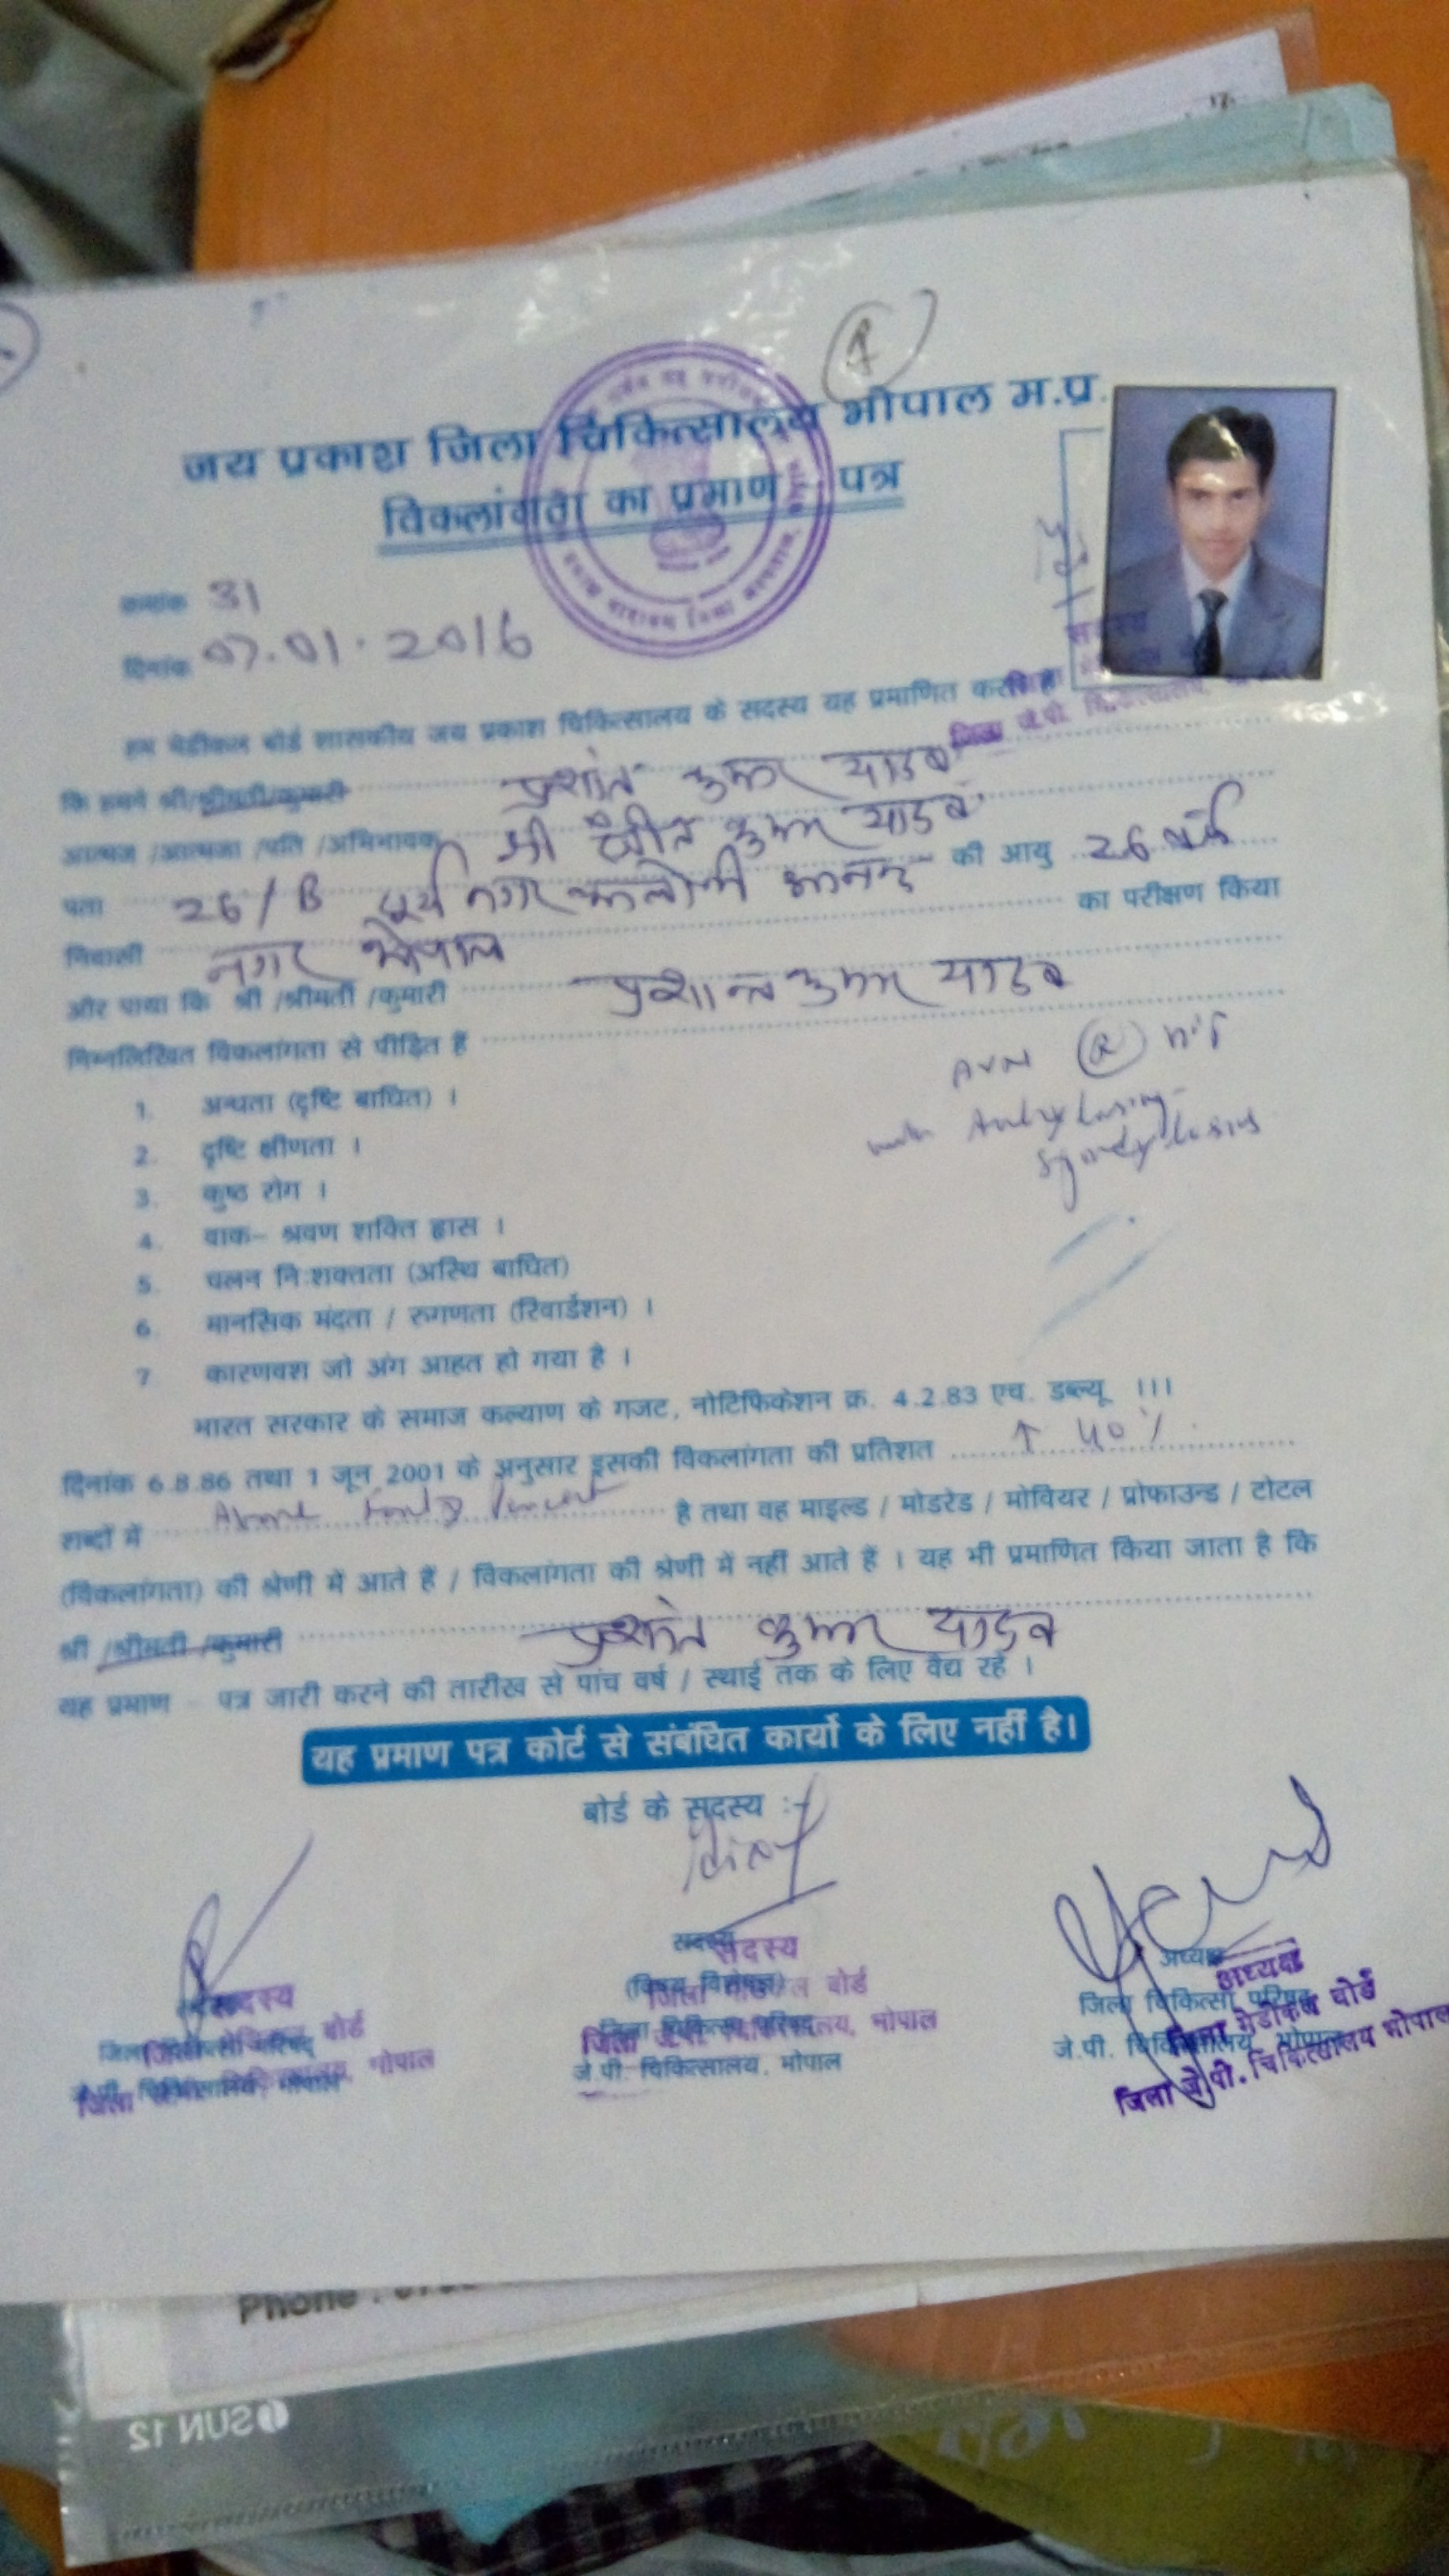 जय प्रकाश जिला चिकित्सालय भोपाल म.प्र.
विकलांगता का प्रमाण - पत्र
क्रमांक 31
दिनांक 07.01.2016
हम मेडीकल बोर्ड शासकीय जय प्रकाश चिकित्सालय के सदस्य यह प्रमाणित करते है
कि हमने श्री/श्रीमती/कुमारी प्रशांत कुमार यादव
आत्मज /आत्मजा /पति /अभिभावक श्री कुमार यादव
पता 26/B नगर कालोनी आनन्द की आयु 26 वर्ष
निवासी नगर भोपाल का परीक्षण किया
और पाया कि श्री /श्रीमती /कुमारी प्रशान्त कुमार यादव
निम्नलिखित विकलांगता से पीड़ित हैं
AVN (R) hip
with Ankylosing
spondylosis
1. अन्धता (दृष्टि बाधित) ।
2. दृष्टि क्षीणता ।
3. कुष्ठ रोग ।
4. वाक– श्रवण शक्ति ह्रास ।
5. चलन नि:शक्तता (अस्थि बाधित)
6. मानसिक मंदता / रुगणता (रिटार्डेशन) ।
7. कारणवश जो अंग आहत हो गया है ।
भारत सरकार के समाज कल्याण के गजट, नोटिफिकेशन क्र. 4.2.83 एच. डब्ल्यू ।।।
दिनांक 6.8.86 तथा 1 जून 2001 के अनुसार इसकी विकलांगता की प्रतिशत ↑ 40%
शब्दों में Above Forty Percent है तथा वह माइल्ड / मोडरेड / मोवियर / प्रोफाउन्ड / टोटल
(विकलांगता) की श्रेणी में आते हैं / विकलांगता की श्रेणी में नहीं आते हैं । यह भी प्रमाणित किया जाता है कि
श्री /श्रीमती /कुमारी प्रशांत कुमार यादव
यह प्रमाण - पत्र जारी करने की तारीख से पांच वर्ष / स्थाई तक के लिए वैद्य रहे ।
यह प्रमाण पत्र कोर्ट से संबंधित कार्यो के लिए नहीं है।
बोर्ड के सदस्य :-
सदस्य
सदस्य
(विषय विशेषज्ञ)
जे.पी. चिकित्सालय, भोपाल
अध्यक्ष
जिला चिकित्सा परिषद
जे.पी. चिकित्सालय, भोपाल
अध्यक्ष
जिला मेडीकल बोर्ड
जिला जे.पी. चिकित्सालय भोपाल
Phone :
SUN 12